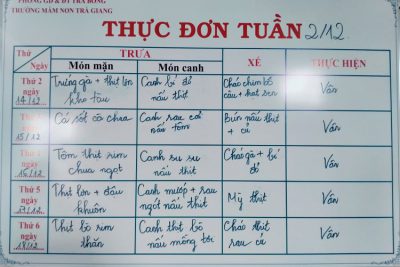 PHÒNG GD & ĐT TRÀ BỒNG
TRƯỜNG MẦM NON TRÀ GIANG
THỰC ĐƠN TUẦN 2/12
Thứ
Ngày
TRƯA
XẾ
THỰC HIỆN
Món mặn
Món canh
Thứ 2
ngày
14/12
Trứng gà + thịt lợn
kho tàu
Canh bí đỏ
nấu thịt
Cháo chim bồ
câu + hạt sen
Vân
ngày
15/12
Cá sốt cà chua
Canh rau cải
nấu tôm
Bún nấu thịt
+ củ
Vân
ngày
16/12
Tôm thịt rim
chua ngọt
Canh su su
nấu thịt
Cháo gà + bí
đỏ
Vân
Thứ 5
ngày
17/12
Thịt lợn + đậu
khuôn
Canh mướp + rau
ngót nấu thịt
Mỳ thịt
Vân
Thứ 6
ngày
18/12
Thịt bò rim
thăn
Canh thịt bò
nấu mồng tơi
Cháo thịt
rau củ
Vân